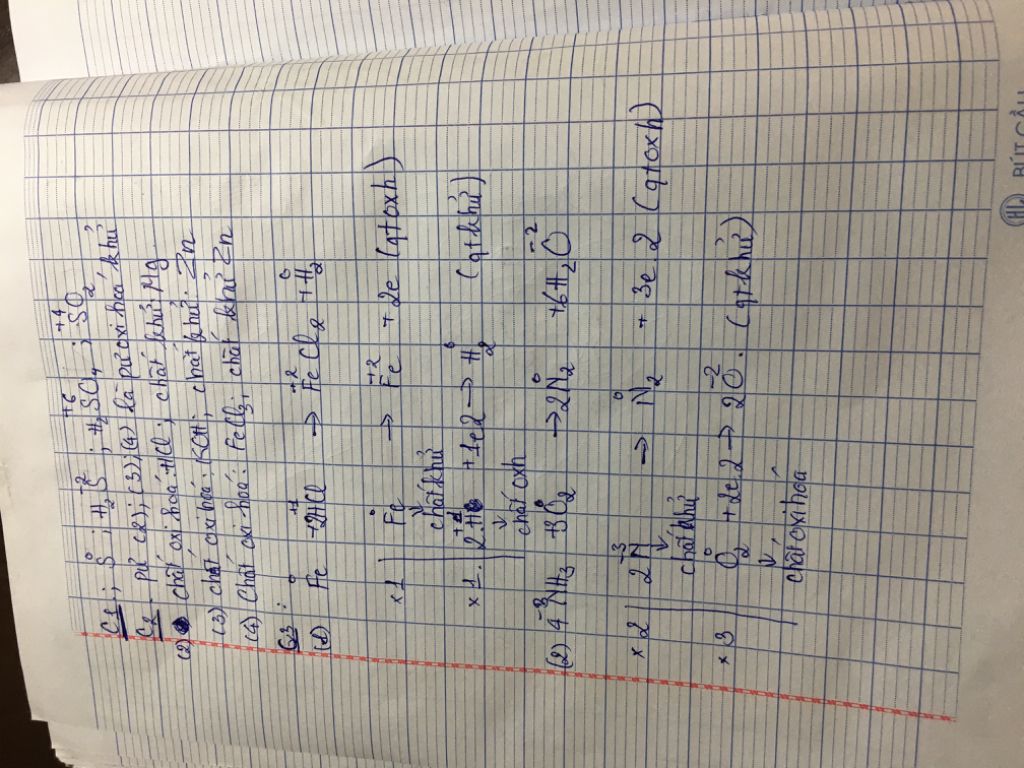 C1: S⁰ ; H₂S⁻² ; H₂S⁺⁶O₄ ; S⁺⁴O₂
C2 pứ (2); (3); (4) là pứ oxi hoá khử
(2) chất oxi hoá: HCl ; chất khử: Mg
(3) chất oxi hoá: KOH; chất khử: Zn
(4) Chất oxi hoá: FeCl₃; chất khử Zn
C3:
(1) Fe⁰ + 2H⁺¹Cl → Fe⁺²Cl₂ + H₂⁰
×1 | Fe⁰ → Fe⁺² + 2e (qt oxh)
↓ chất khử
×1. 2H⁺¹ + 1e2 → H₂⁰ (qt khử)
↓ chất oxh
(2) 4N⁻³H₃ + 3O₂⁰ → 2N₂⁰ + 6H₂O⁻²
×2 | 2N⁻³ → N₂⁰ + 3e.2 (qt oxh)
↓ chất khử
×3 O₂⁰ + 2e2 → 2O⁻². (qt khử)
↓ chất oxi hoá
BÚT CẦU